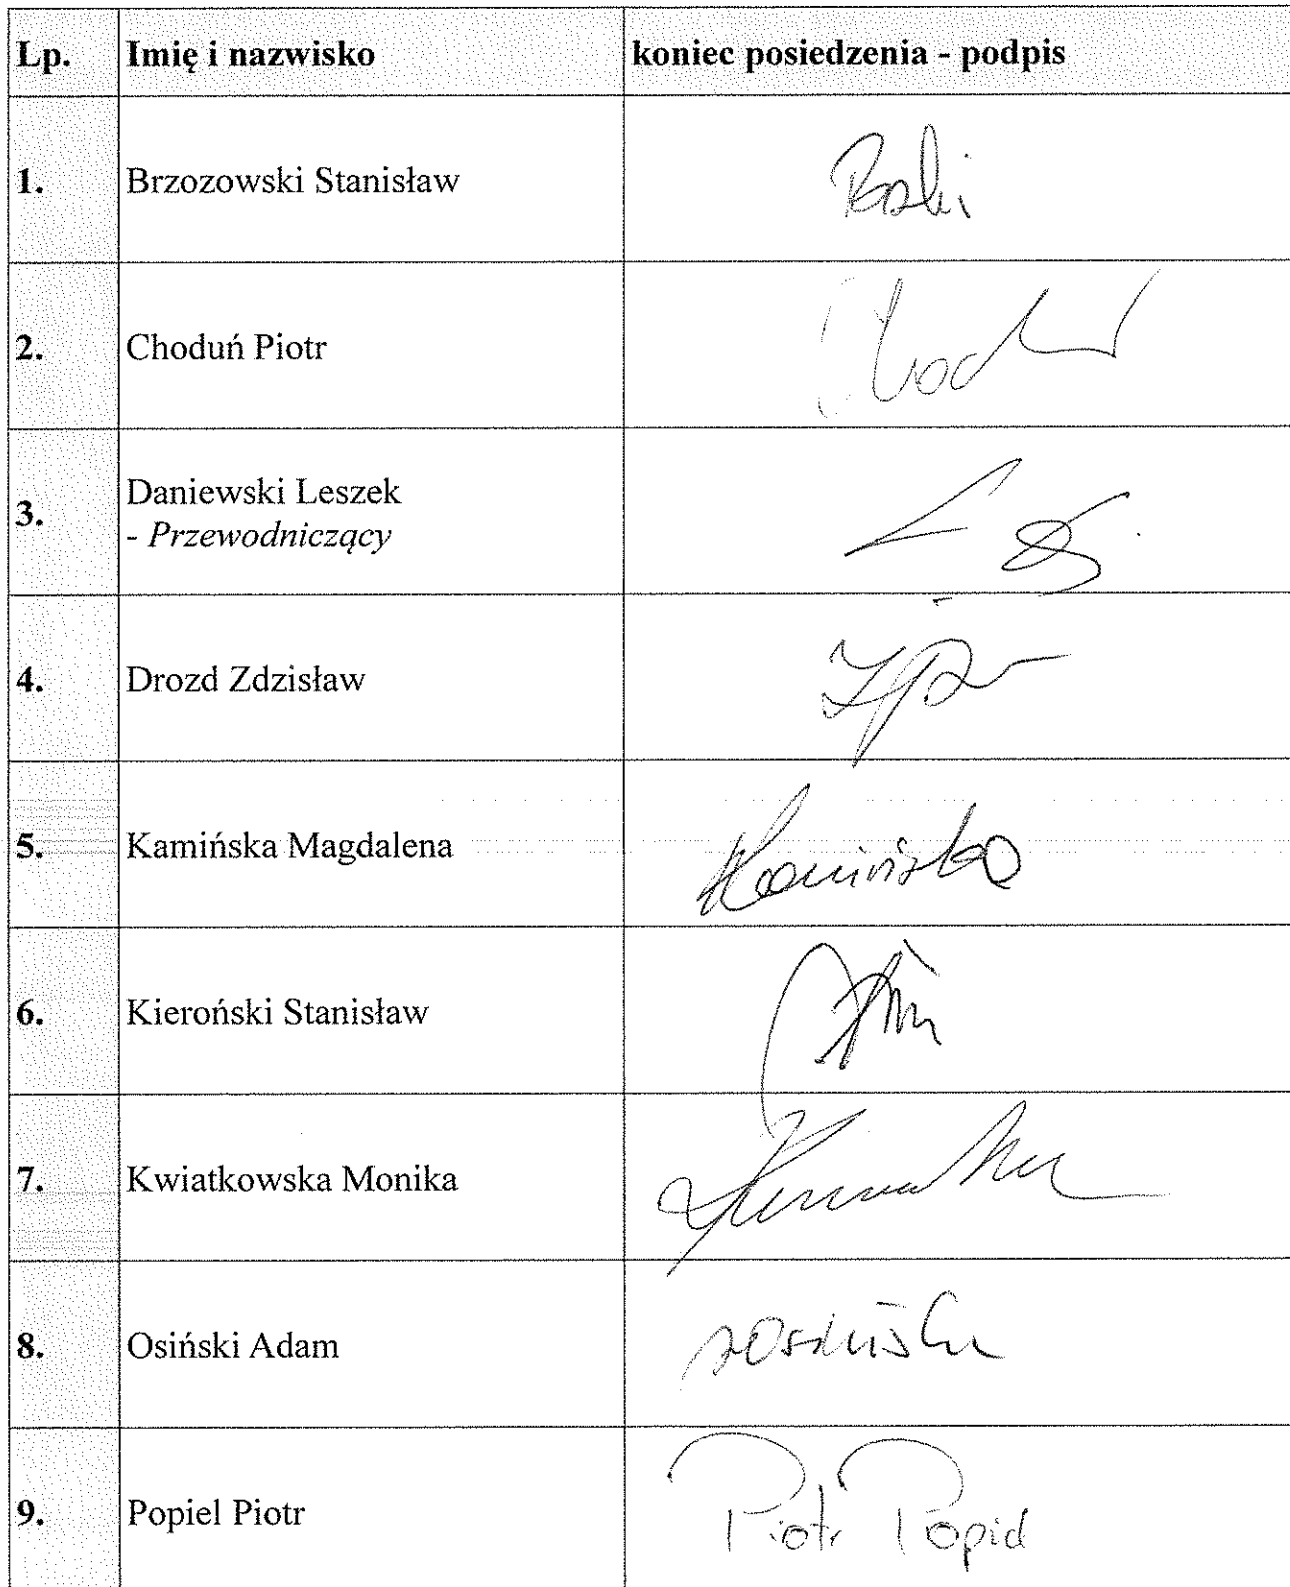 Lp. Imię i nazwisko koniec posiedzenia - podpis
1. Brzozowski Stanisław
2. Choduń Piotr
3. Daniewski Leszek
- Przewodniczący
4. Drozd Zdzisław
5. Kamińska Magdalena Kamińska
6. Kieroński Stanisław
7. Kwiatkowska Monika
8. Osiński Adam
9. Popiel Piotr Piotr Popiel